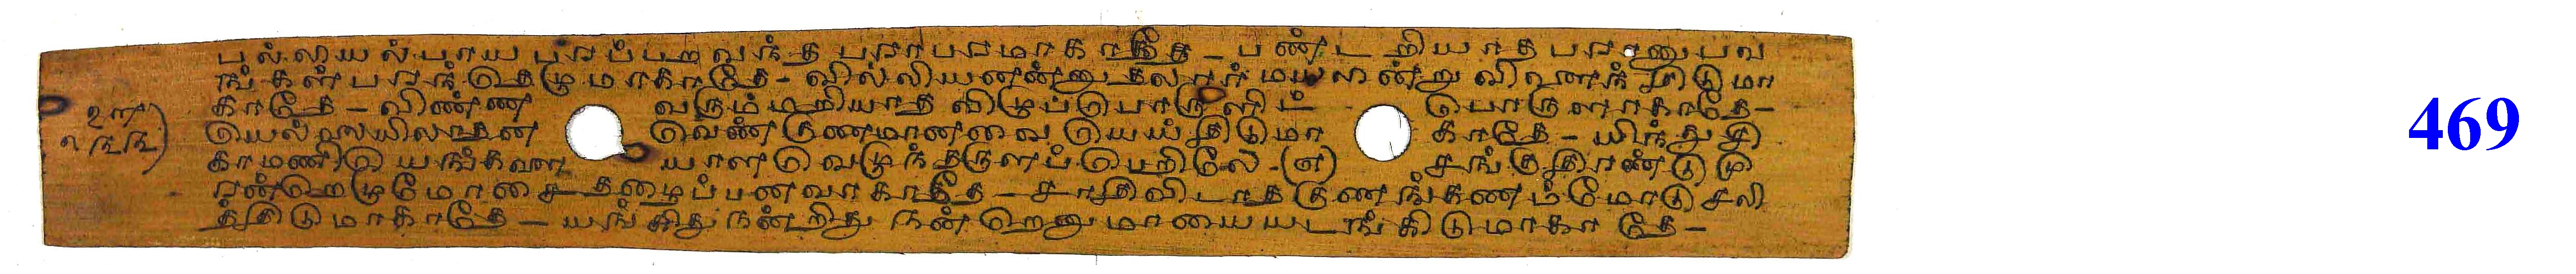 பல்லியல்பாய பரப்பற வந்த பராபரமாகாதே - பண்டறியாத பரானுபவ
ங்கள் பரந்தெழுமாகாதே - வில்லியனன்னுதலார்மயலின்று விளைந்திடுமா
காதே - விண்ண வரும்மறியாத விழுப்பொருளிப் பொருளாகாதே -
யெல்லையிலாதன வெண்குணமானவை யெய்திடுமா காதே - யிந்துசி
காமணி யெங்களை யாளவெழுந்தருளப்பெறிலே - (எ) சங்குதிரண்டுமு
ரன்றெழுமோசை தழைப்பனவாகாதே - சாதிவிடாத குணங்களும்மோடு சலி
த்திடுமாகாதே - யங்கிது நன்றிது நன்றெனுமாயையடங்கிடுமாகாதே -
469